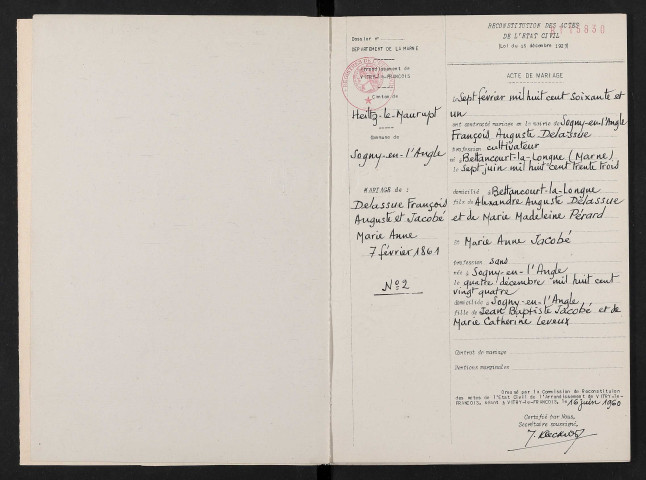 Dossier n°
DEPARTEMENT DE LA MARNE
Arrondissement de
VITRY-le-FRANCOIS
Canton de
Heiltz-le-Maurupt
Commune de
Sogny-en-l'Angle
MARIAGE de :
Delassue François
Auguste et Jacobé
Marie Anne
7 février 1861
N° 2
RECONSTITUTION DES ACTES
DE L'ETAT CIVIL
(Loi du 15 décembre 1923)
ACTE DE MARIAGE
Le Sept février mil huit cent soixante et
un
ont contracté mariage en la mairie de Sogny-en-l'Angle
François Auguste Delassue
profession cultivateur
né à Bettancourt-la-Longue (Marne)
le Sept juin mil huit cent trente trois
domicilié à Bettancourt-la-Longue
fils de Alexandre Auguste Delassue
et de Marie Madeleine Pérard
et Marie Anne Jacobé
profession sans
née à Sogny-en-l'Angle
le quatre décembre mil huit cent
vingt quatre
domiciliée à Sogny-en-l'Angle
fille de Jean Baptiste Jacobé et de
Marie Catherine Leveux
Contrat de mariage
Mentions marginales
Dressé par la Commission de Reconstitution
des actes de l'Etat Civil de l'arrondissement de VITRY-le-
FRANCOIS, séant à VITRY-le-FRANCOIS, le 16 juin 1960
Certifié par Nous,
Secrétaire soussigné,